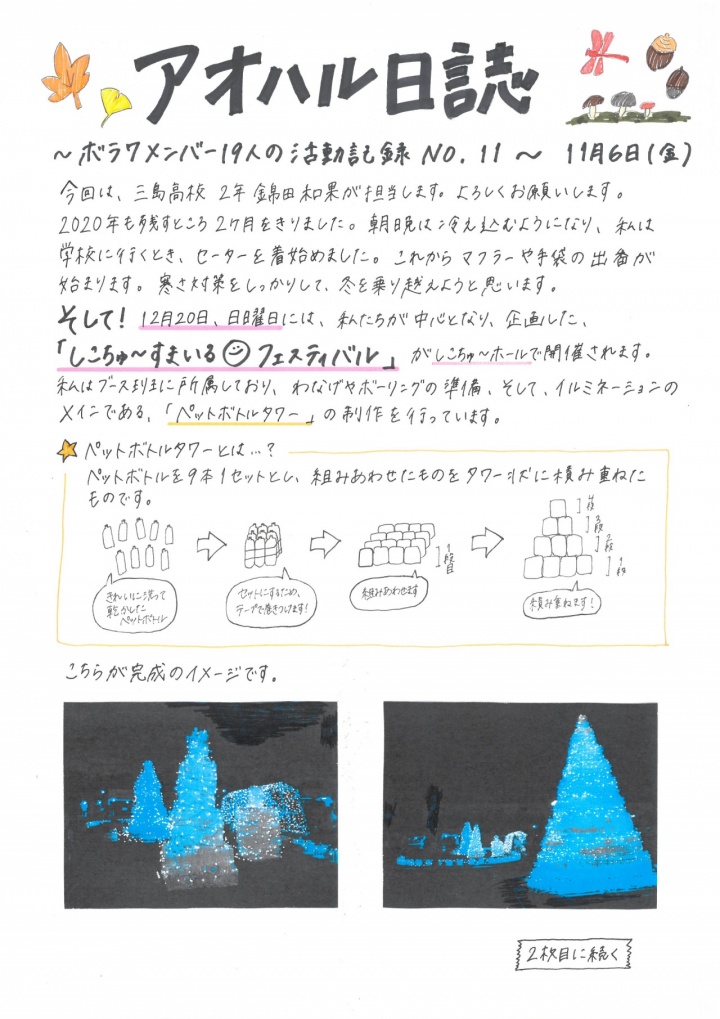 アオハル日誌
～ボラワメンバー19人の活動記録 NO.11～ 11月6日(金)
今回は、三島高校 2年 錦田和果が担当します。よろしくお願いします。
2020年も残すところ2ケ月をきりました。朝晩は冷え込むようになり、私は
学校に行くとき、セーターを着始めました。これからマフラーや手袋の出番が
始まります。寒さ対策をしっかりして、冬を乗り越えようと思います。
そして!12月20日、日曜日には、私たちが中心となり、企画した、
「しこちゅ～すまいるフェスティバル」がしこちゅ～ホールで開催されます。
私はブース班に所属しており、わなげやボーリングの準備、そして、イルミネーションの
メインである、「ペットボトルタワー」の制作を行っています。
ペットボトルタワーとは…?
ペットボトルを9本1セットとし、組みあわせたものをタワー状に積み重ねた
ものです。
きれいに洗って
乾かした
ペットボトル
セットにするため、
テープで巻きつけます!
1段目
組みあわせます
4段
3段
2段
1段
積み重ねます!
こちらが完成のイメージです。
2枚目に続く